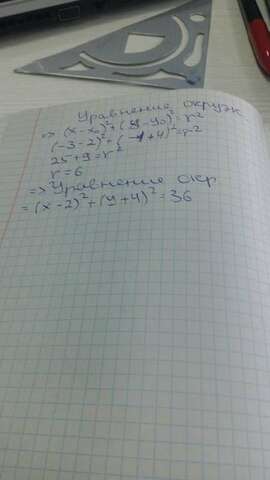 Уравнение окруж
=> (x-x₀)²+(y-y₀)²=r²
(-3-2)²+(-1+4)²=r²
25+9=r²
r=6
=> Уравнение окр
= (x-2)²+(y+4)²=36